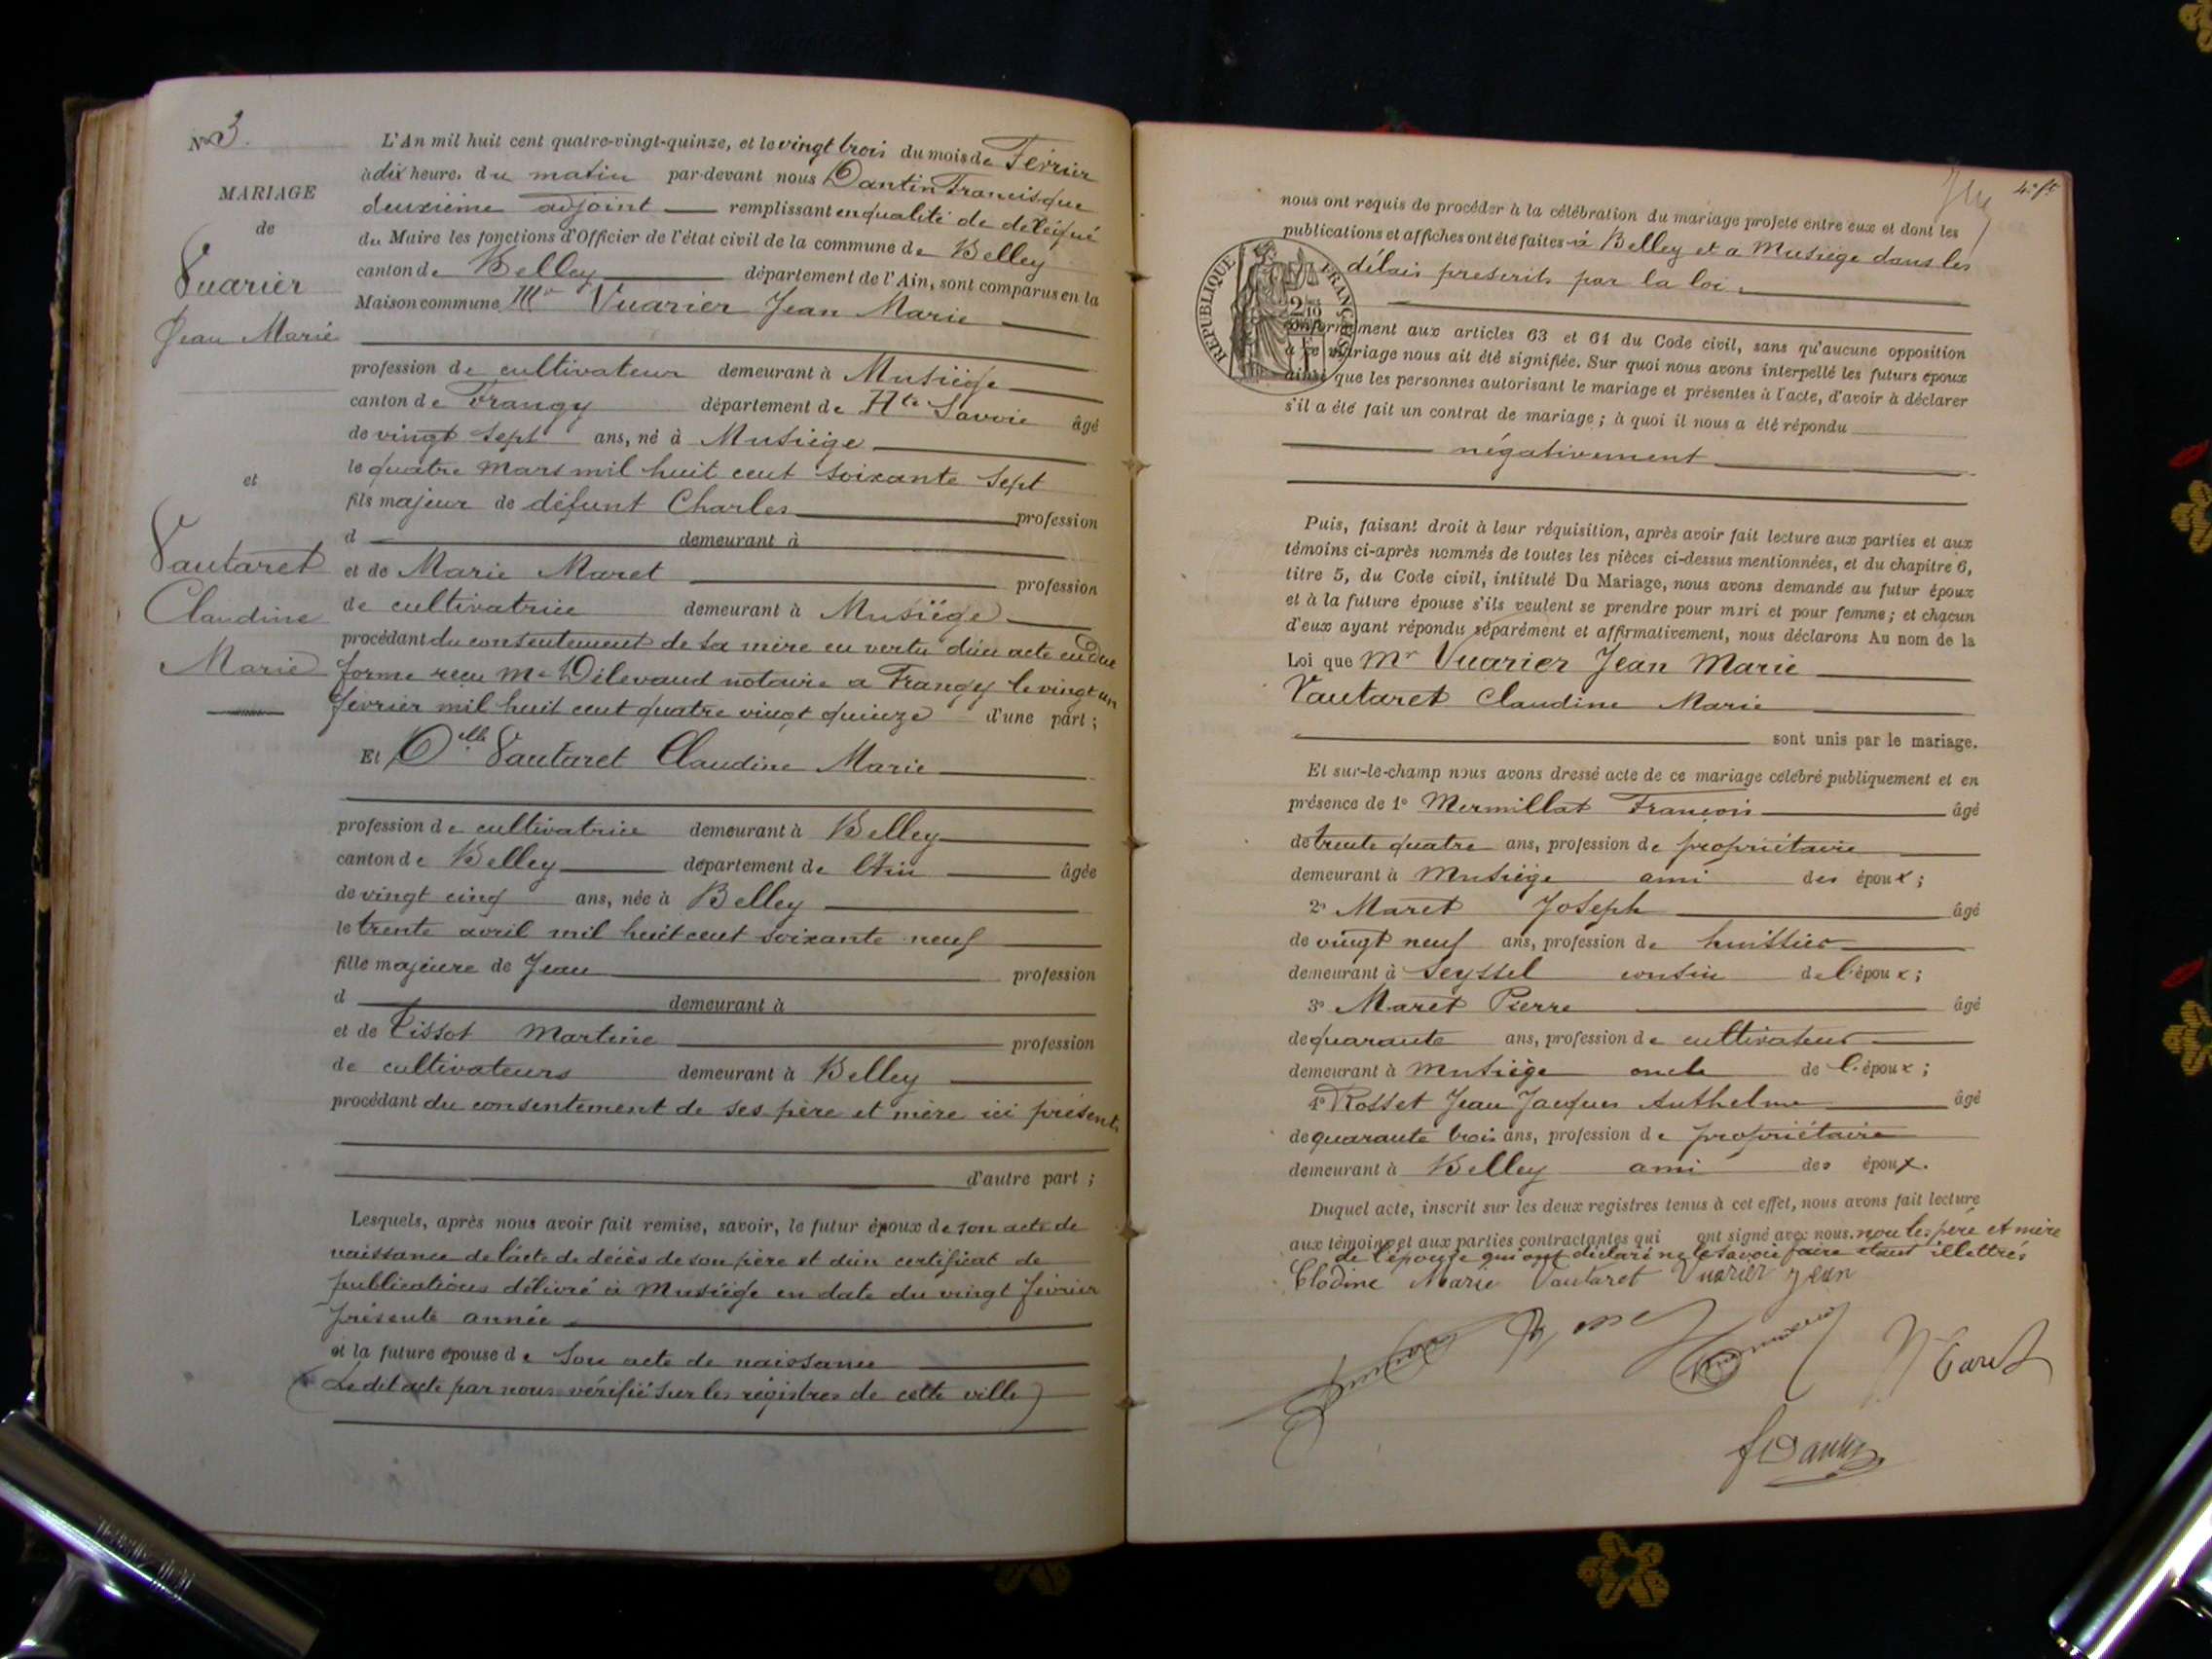 N° 3.
MARIAGE
de
Vuarier
Jean Marie
et
Vautaret
Claudine
Marie
L'An mil huit cent quatre-vingt-quinze, et le vingt trois du mois de Février
à dix heure. du matin par-devant nous Dantin Francisque
deuxième adjoint remplissant en qualité de délégué
du Maire les fonctions d'Officier de l'état civil de la commune de Belley
canton de Belley département de l'Ain, sont comparus en la
Maison commune Mr Vuarier Jean Marie
profession de cultivateur demeurant à Musiège
canton de Frangy département de Hte Savoie âgé
de vingt sept ans, né à Musiège
le quatre mars mil huit cent soixante sept
fils majeur de défunt Charles profession
d demeurant à
et de Marie Maret profession
de cultivatrice demeurant à Musiège
procédant du consentement de sa mère en vertu d'un acte en due
forme reçu Me Délevaud notaire a Frangy le vingt un
février mil huit cent quatre vingt quinze d'une part ;
Et Dlle Vautaret Claudine Marie
profession de cultivatrice demeurant à Belley
canton de Belley département de l'Ain âgée
de vingt cinq ans, née à Belley
le trente avril mil huit cent soixante neuf
fille majeure de Jean profession
d demeurant à
et de Tissot Martine profession
de cultivateurs demeurant à Belley
procédant du consentement de ses père et mère ici présents
d'autre part ;
Lesquels, après nous avoir fait remise, savoir, le futur époux de son acte de
naissance de l'acte de décès de son père et d'un certificat de
publications délivré à Musiège en date du vingt février
présente année
et la future épouse de son acte de naissance
(Le dit acte par nous vérifié sur les registres de cette ville)
4e ft
nous ont requis de procéder à la célébration du mariage projeté entre eux et dont les
publications et affiches ont été faites à Belley et a Musiège dans les
délais prescrits par la loi.
RÉPUBLIQUE FRANÇAISE
2/10
conformément aux articles 63 et 64 du Code civil, sans qu'aucune opposition
à ce mariage nous ait été signifiée. Sur quoi nous avons interpellé les futurs époux
ainsi que les personnes autorisant le mariage et présentes à l'acte, d'avoir à déclarer
s'il a été fait un contrat de mariage ; à quoi il nous a été répondu
négativement
Puis, faisant droit à leur réquisition, après avoir fait lecture aux parties et aux
témoins ci-après nommés de toutes les pièces ci-dessus mentionnées, et du chapitre 6,
titre 5, du Code civil, intitulé Du Mariage, nous avons demandé au futur époux
et à la future épouse s'ils veulent se prendre pour mari et pour femme ; et chacun
d'eux ayant répondu séparément et affirmativement, nous déclarons Au nom de la
Loi que Mr Vuarier Jean Marie
Vautaret Claudine Marie
sont unis par le mariage.
Et sur-le-champ nous avons dressé acte de ce mariage célébré publiquement et en
présence de 1° Mermillat François âgé
de trente quatre ans, profession de propriétaire
demeurant à Musiège ami des époux ;
2° Maret Joseph âgé
de vingt neuf ans, profession de huissier
demeurant à Seyssel cousin de l'époux ;
3° Maret Pierre âgé
de quarante ans, profession de cultivateur
demeurant à Musiège oncle de l'époux ;
4° Rosset Jean Jacques Anthelme âgé
de quarante trois ans, profession de propriétaire
demeurant à Belley ami des époux.
Duquel acte, inscrit sur les deux registres tenus à cet effet, nous avons fait lecture
aux témoins et aux parties contractantes qui ont signé avec nous. non les père et mère
de l'épouse qui ont déclaré ne le savoir faire étant illettrés
Clodine Marie Vautaret Vuarier Jean